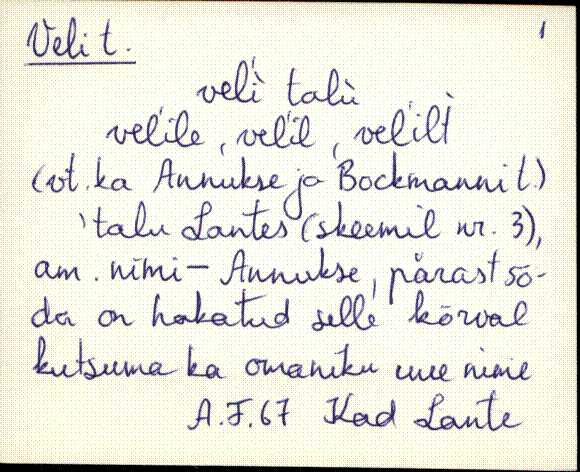 Veli t. 1
veli̇̀ talù
vel'ile, vel'il, vel'ilt
(vt. ka Annukse ja Bockmanni t.)
'talu Lantes (skeemil nr. 3),
am. nimi – Annukse, pärast sõ-
da on hakatud selle kõrval
kutsuma ka omaniku uue nime
A.F.67 Kad Lante